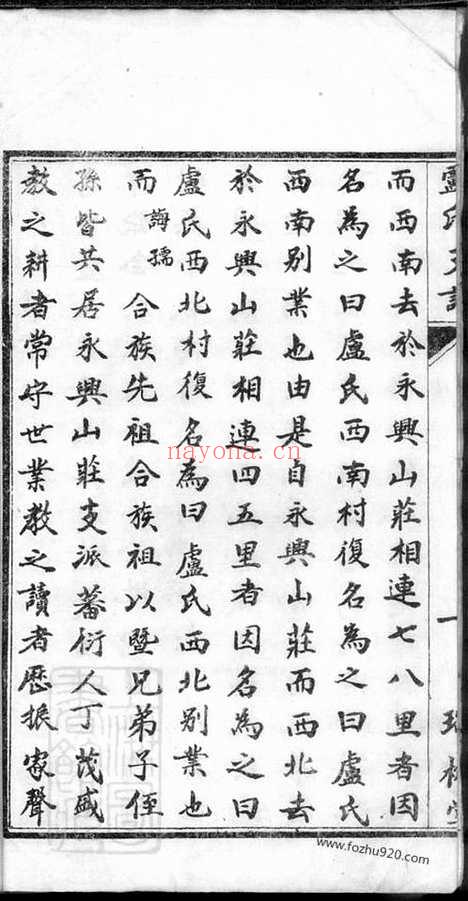 而西南去於永興山莊相連七八里者因
名為之曰盧氏西南村復名為之曰盧氏
西南別業也由是自永興山莊而西北去
於永興山莊相連四五里者因名為之曰
盧氏西北村復名為曰盧氏西北別業也
而誨孺 合族先祖合族祖以暨兄弟子侄
孫皆共居永興山莊支派蕃衍人丁茂盛
教之耕者常守世業教之讀者歷振家聲
nayona.cn
www.fozhu920.com